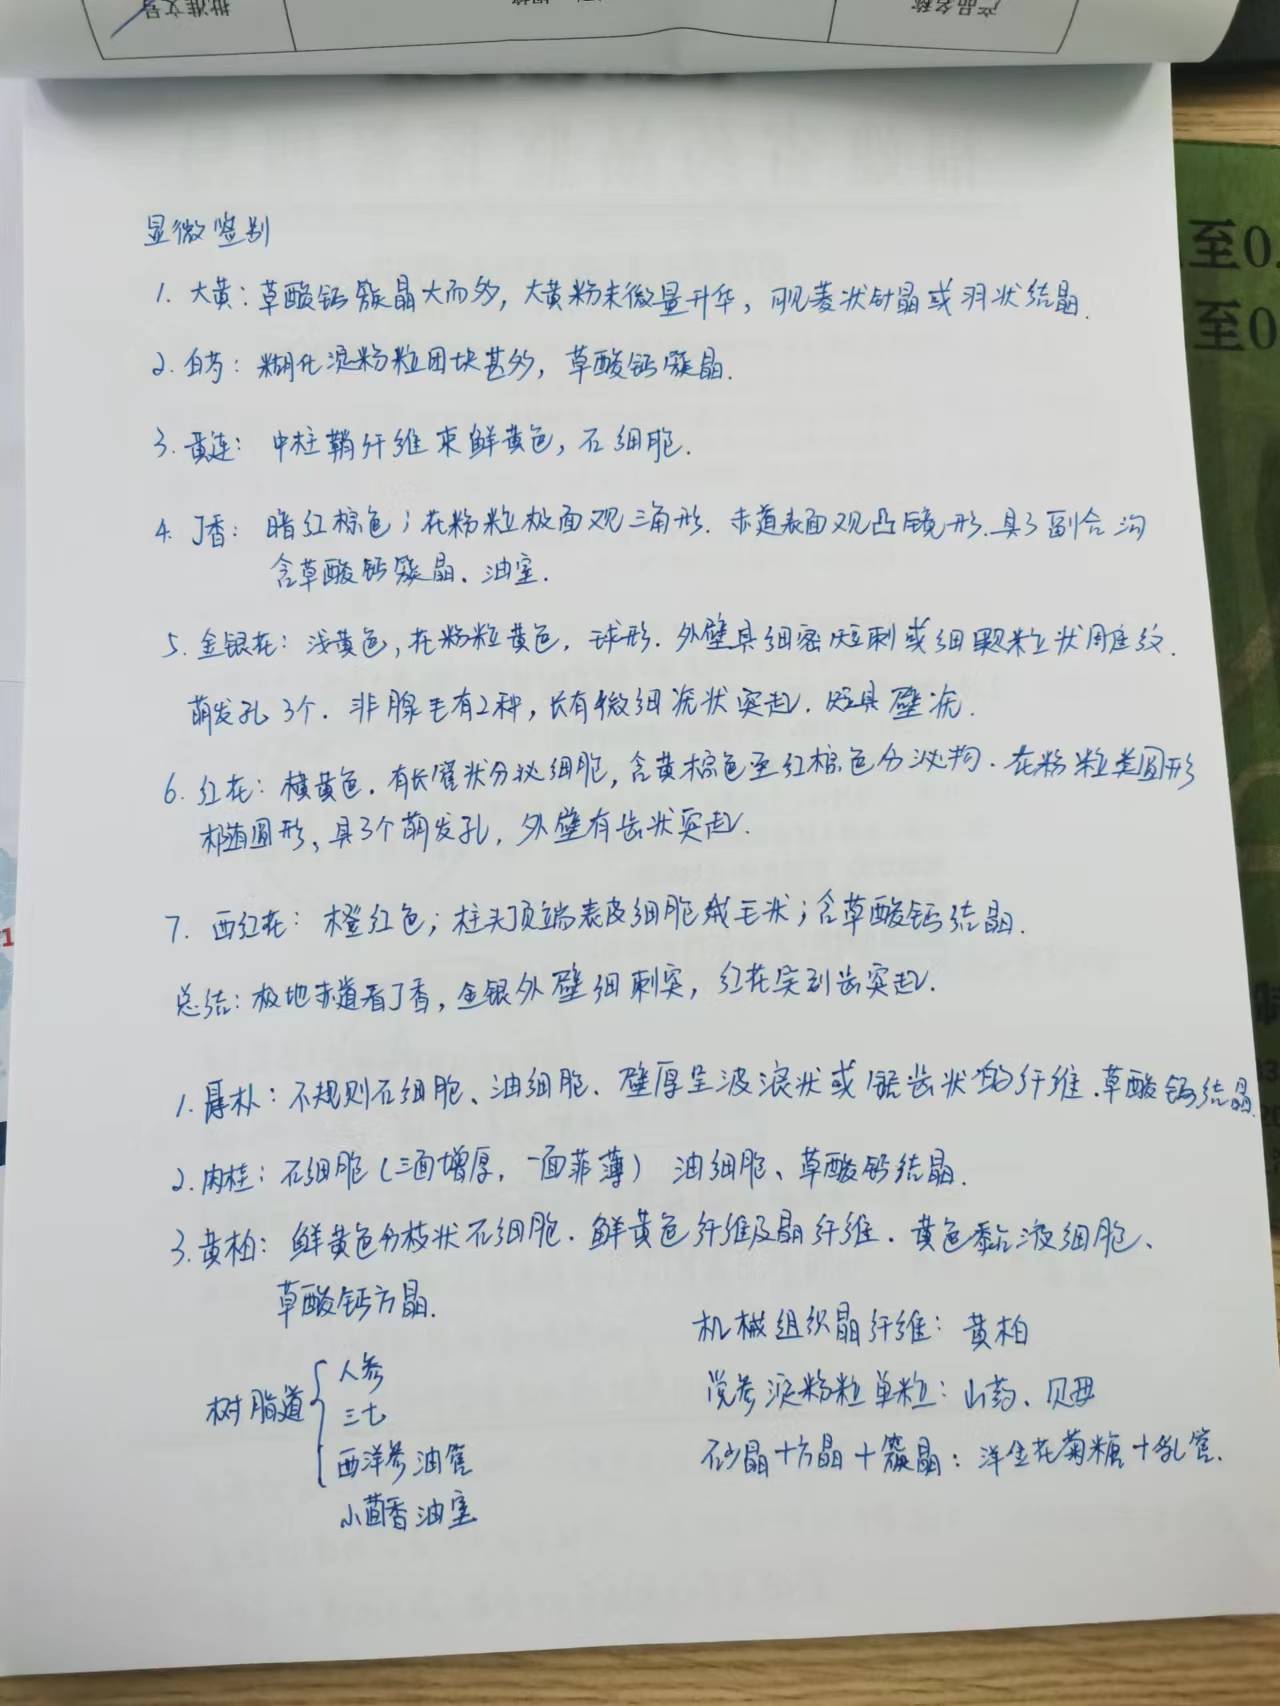 批准文号
产品名称
至0.
至0
显微鉴别
1. 大黄：草酸钙簇晶大而多，大黄粉末微量升华，可见菱状针晶或羽状结晶.
2. 白芍：糊化淀粉粒团块甚多，草酸钙簇晶.
3. 黄连：中柱鞘纤维束鲜黄色，石细胞.
4. 丁香：暗红棕色；花粉粒极面观三角形. 赤道表面观凸镜形.具3副合沟
含草酸钙簇晶. 油室.
5. 金银花：浅黄色，花粉粒黄色，球形. 外壁具细密短刺或细颗粒状周庭纹.
萌发孔3个. 非腺毛有2种，长有微细疣状突起. 短具壁疣.
6. 红花：橙黄色. 有长管状分泌细胞，含黄棕色至红棕色分泌物. 花粉粒类圆形
椭圆形、具3个萌发孔，外壁有齿状突起.
7. 西红花：橙红色；柱头顶端表皮细胞绒毛状；含草酸钙结晶.
总结：极地赤道看丁香，金银外壁细刺突，红花实到齿突起.
1. 厚朴：不规则石细胞、油细胞. 壁厚呈波浪状或锯齿状的纤维.草酸钙结晶.
2. 肉桂：石细胞（三面增厚，一面菲薄） 油细胞、草酸钙结晶.
3. 黄柏：鲜黄色分枝状石细胞. 鲜黄色纤维及晶纤维. 黄色黏液细胞、
草酸钙方晶.
机械组织晶纤维：黄柏
树脂道 人参
三七
西洋参油管
小茴香油室
党参淀粉粒单粒：山药、贝母
砂晶+方晶+簇晶：洋金花菊糖+乳管.